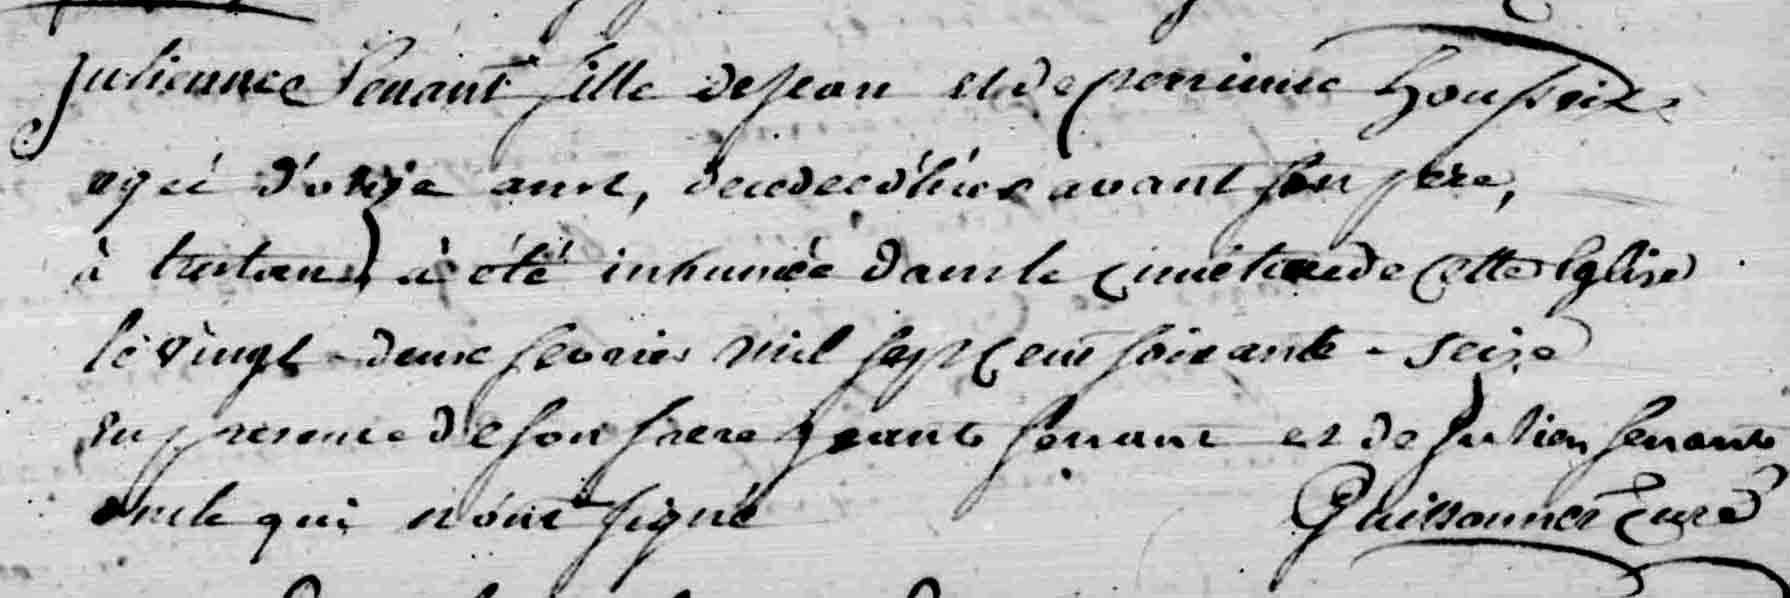 julienne Senant fille de jean et de perrinne houssaix
agéé d'onze anns, decedeé hier avant son pere,
à tertan, à été inhumée dans le cimétiere de cette Eglise
le vingt-deux fevrier mil sept cens soixante-seize
en presence de son frere jean senant et de julien senant
oncle qui n'ont signé Guissonnet curé